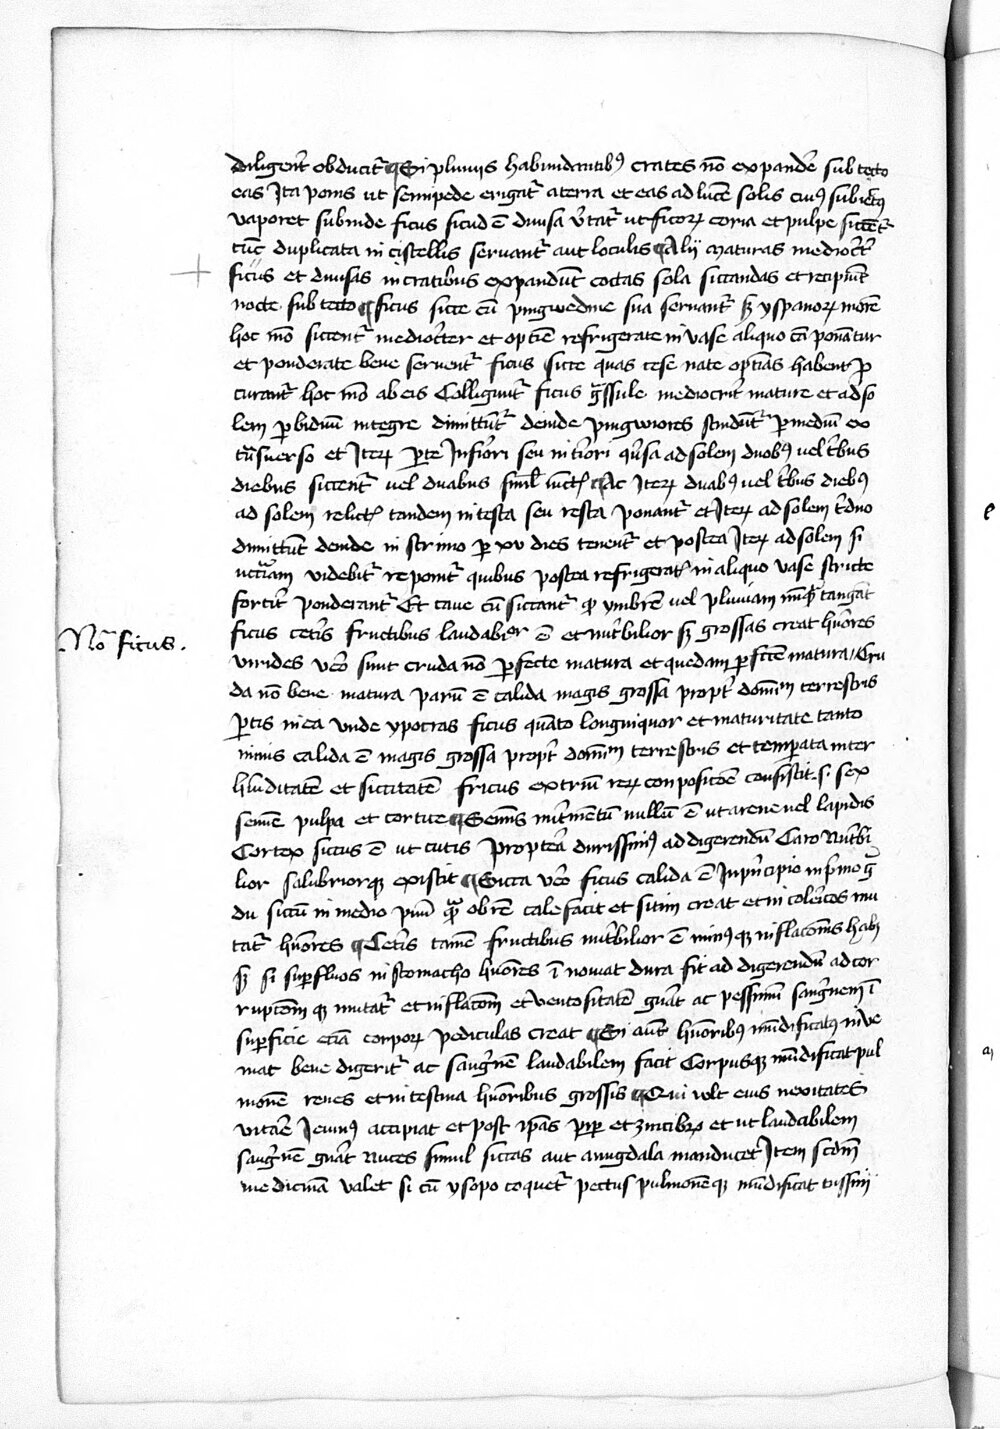 diligent̄ obducit᷑ ¶ Si pluuijs habundantib9 crates nō expandēs sub tecto
eas Ita ponis ut semipede erigat᷑ a terra et eas ad lucē solis cui9 subiect9
vaporet subinde ficus sicud ē diuisa v̄tat᷑ ut ficoꝝ coria et pulpe siccēt᷑
tūc duplicata in cistellis seruant᷑ aut loculis ¶ Alij maturas mediocr̄t᷑
ficus et diuisas in cratibus expandūt coctas sola siccandas et recipiūt
nocte sub tecto ¶ ficus sicce cū pingwedine sua seruant᷑ yspanoꝝ morē
hoc mō siccent᷑ mediocr̄ter et optiē refrigerate in vase aliquo cū ponātur
et ponderate bene seruent᷑ ficus sicce quas cese nate optīas habent ꝓ
curant᷑ hoc mō ab eis Colligunt᷑ ficus g̃ssule mediocrit᷑ mature et ad so
lem ꝑ biduū integre dimittūt᷑ deinde pingwiores scindūt᷑ ꝑ mediū ex
tᷓsuerso et Iteꝝ ꝑte Infiori seu int̄iori v̄sa ad solem duob9 uel t̄bus
diebus siccent᷑ uel duabus siml̄ iūct᷑ ¶ Ac Iteꝝ duab9 uel t̄bus dieb9
ad solem relict᷑ tandem in testa seu resta ponant᷑ et Iteꝝ ad solem t̄duo
dimittūt deinde in scrinio ꝑ xv dies tenent᷑ et postea Iteꝝ ad solem si
videbit᷑ reponit᷑ quibus postea refrigerat᷑ in aliquo vase stricte
fortit᷑ ponderant᷑ Et caue cū siccant᷑ ymbrē vel pluuiam tangāt
Nō ficus.
ficus cet̄is fructibus laudabior ē et nut̄bilior grossas creat hūores
virides v̄o sunt cruda nō ꝑfecte matura et quedam ꝑfctē matura / Cru
da nō bene matura parū ē calida magis grossa propt᷑ domīm terrestris
ꝑtis in ea vnde ypocras ficus quāto longinquior et maturitate tanto
minus calida ē magis grossa propt᷑ domīm terrestris et temꝑata inter
hūiditatē et siccitatē fricus ex triū reꝝ conpositōe consistit s. sex
semē pulpa et cortice ¶ Semīs nut̄mentū nullū ē ut arene uel lapidis
Cortex siccus ē ut cutis proptea durissim9 ad digerendū Caro nut̄bi
lior salubriorqꝫ existit ¶ Sicca v̄o ficus calida ē In pīncipio in p̄mo g̃
du siccū in medio p̄mi ob rē calefacit et sitim creat et in colēicos mu
tat᷑ hūores ¶ Cet̄is tamē fructibus nut̄bilior ē min9 qꝫ inflacōnis habꝫ
si suꝑfluos in stomacho hūores ī nouat dura fit ad digerendū ad cor
rupcōem qꝫ mutat᷑ et inflacōm et ventositatē gnat ac pessimū sangnem ī
suꝑficie etiā corporꝫ pediculas creat ¶ Si aut hūorib9 mūdificat9 inue
niat bene digerit᷑ ac sangnē laudabilem facit Corpusqꝫ mūdificat pul
monē renes et intestina hūoribus grossis ¶ Qui vult eius nexitates
vitāe Ieiun9 accipiat et post ip̄as pip̄ et zinciberꝫ et ut laudabilem
sangnē gnāt Nuces simul siccas aut amigdala manducet Item scdm̄
medicinā valet si cū ysopo coquet᷑ pectus pulmonē qꝫ mūdificat tussim